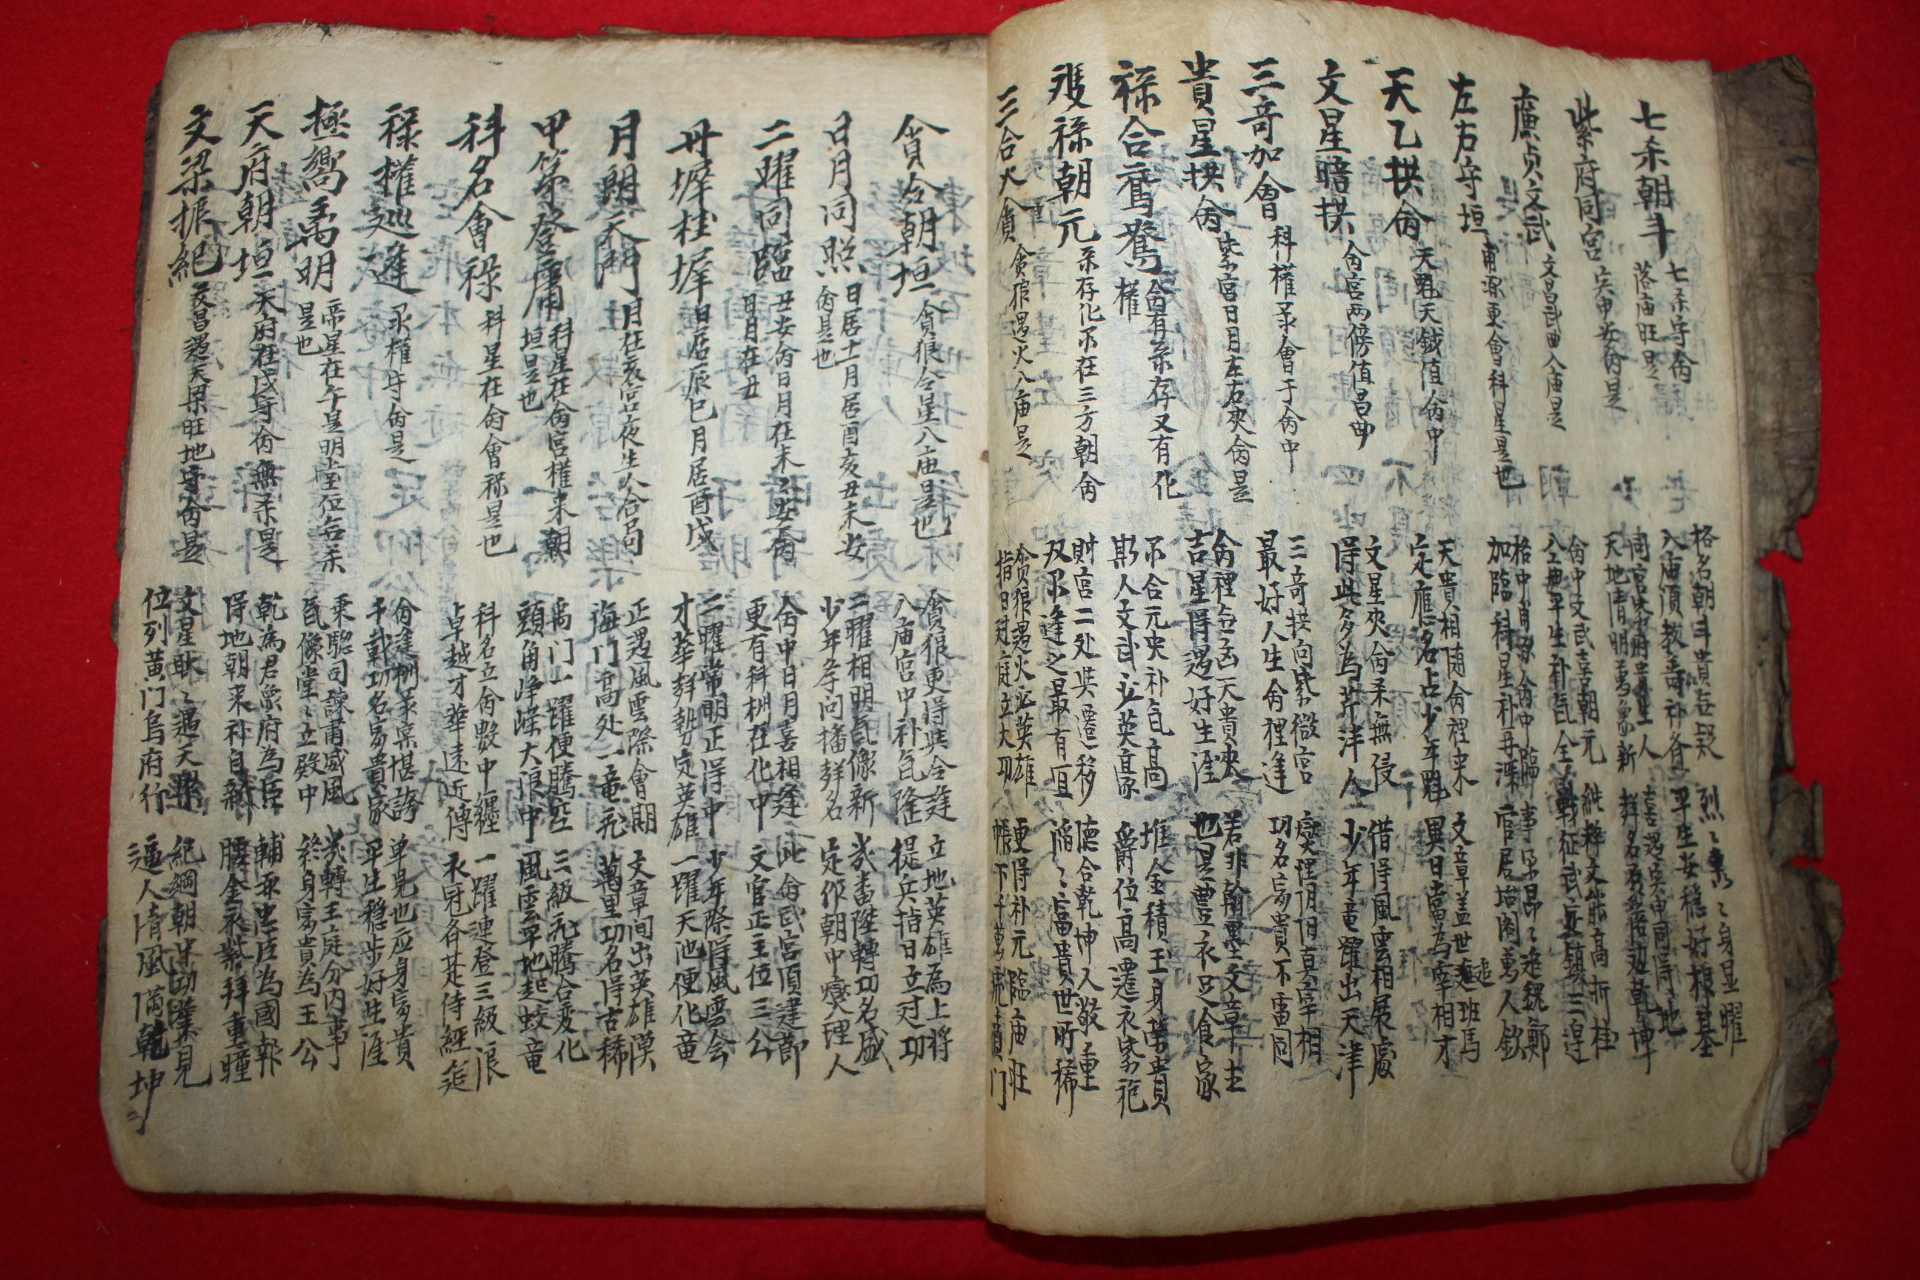 七杀朝斗 七杀守命落庙旺是
格名朝斗貴无疑 烈〻轟〻身显曜
入庙須教壽祿各 平生安稳好根基
紫府同宮 寅申安命是
同宮紫府貴生人 喜遇寅申同得地
天地清明萬象新
廉贞文武 文昌武曲入庙是
命中文武喜朝元 純粹文能高折桂
入庙平生补气全 戰征武立鎮三邊
左右守垣 更會科星是也
格中 命中臨
加臨科星 官居坮阁萬人欽
天乙拱命 天魁天鉞值命中
天貴相隨命裡来 文章盖世追班馬
定應名占少年魁 異日當為宰相才
文星暗拱 命宮两傍值昌曲
文星夾命杀無侵 借得風雲相展處
得此多為芹泮人 少年竜躍出天津
三奇加會 科權彔會于命中
三奇拱向紫微宮 燮理阴阳真宰相
最好人生命裡逢 功名富貴不雷同
貴星拱命 紫宮日月左右夾命是
命裡 天貴夾 若非翰墨文章士
吉星得遇好生涯 也是豊衣足食家
祿合鴛鴦 命有彔存又有化權
彔合元央补气高 堆金積玉身荣貴
斯人文武必英豪 爵位高遷衣紫袍
双祿朝元 彔存化彔在三方朝命
財宮二处與遷移 德合乾坤人敬重
双彔逢之最有宜 滔〻富貴世所稀
三合火貪 貪狼遇火入庙是
貪狼遇火必英雄 更得补元臨庙旺
指日边庭立大功 帳下千萬
貪令朝垣 貪狼令星入庙是也
貪狼更得與令逢 立地英雄為上将
入庙宮中补气隆 提兵指日立边功
日月同照 日居十一月居酉亥丑未安命是也
二曜相明气像新 我番陞轉功名盛
少年李向播群名 定作朝中燮理人
二曜同臨 丑安命日月在未未安命日月在丑
命中日月喜相逢 此命武宮頂建節
更有科权在化中 文官正主位三公
丹墀桂墀 日居辰巳月居酉戌
二曜常明正得中 少年際得風雲会
才華群㧞定英雄 一躍天池便化竜
月朗天門 月在亥宮夜生人合局
正遇風雲際會期 文章间出英雄漢
海门高处一竜飛 萬里功名得古稀
甲第登庸 科星在命宮權来朝垣是也
禹门一躍便騰空 三級飛騰合变化
頭角峥嵘大浪中 風雲平地起蛟竜
科名會祿 科星在命會祿是也
科名立命數中纏 一躍連登三級浪
卓越才華遠近傳 衣冠各足侍經筵
祿權巡逢 彔權守命是
命逢权彔宲堪誇 单見也应身富貴
千載功名富貴家 平生稳步好生涯
極嚮离明 帝星在午是明堂位无杀是也
乘驄司諫肅威風 幾轉王庭分内事
气像堂〻立殿中 終身富貴為王公
天府朝垣 天府在戌守命無杀是
乾為君象府為臣 輔弼忠臣為國幹
得地朝来补自新 腰金衣紫拜重瞳
文梁振紀 文昌遇天梁旺地守命是
文星耿〻遇天梁 紀綱朝 見
位列黄门烏府行 逼人清風满乾坤